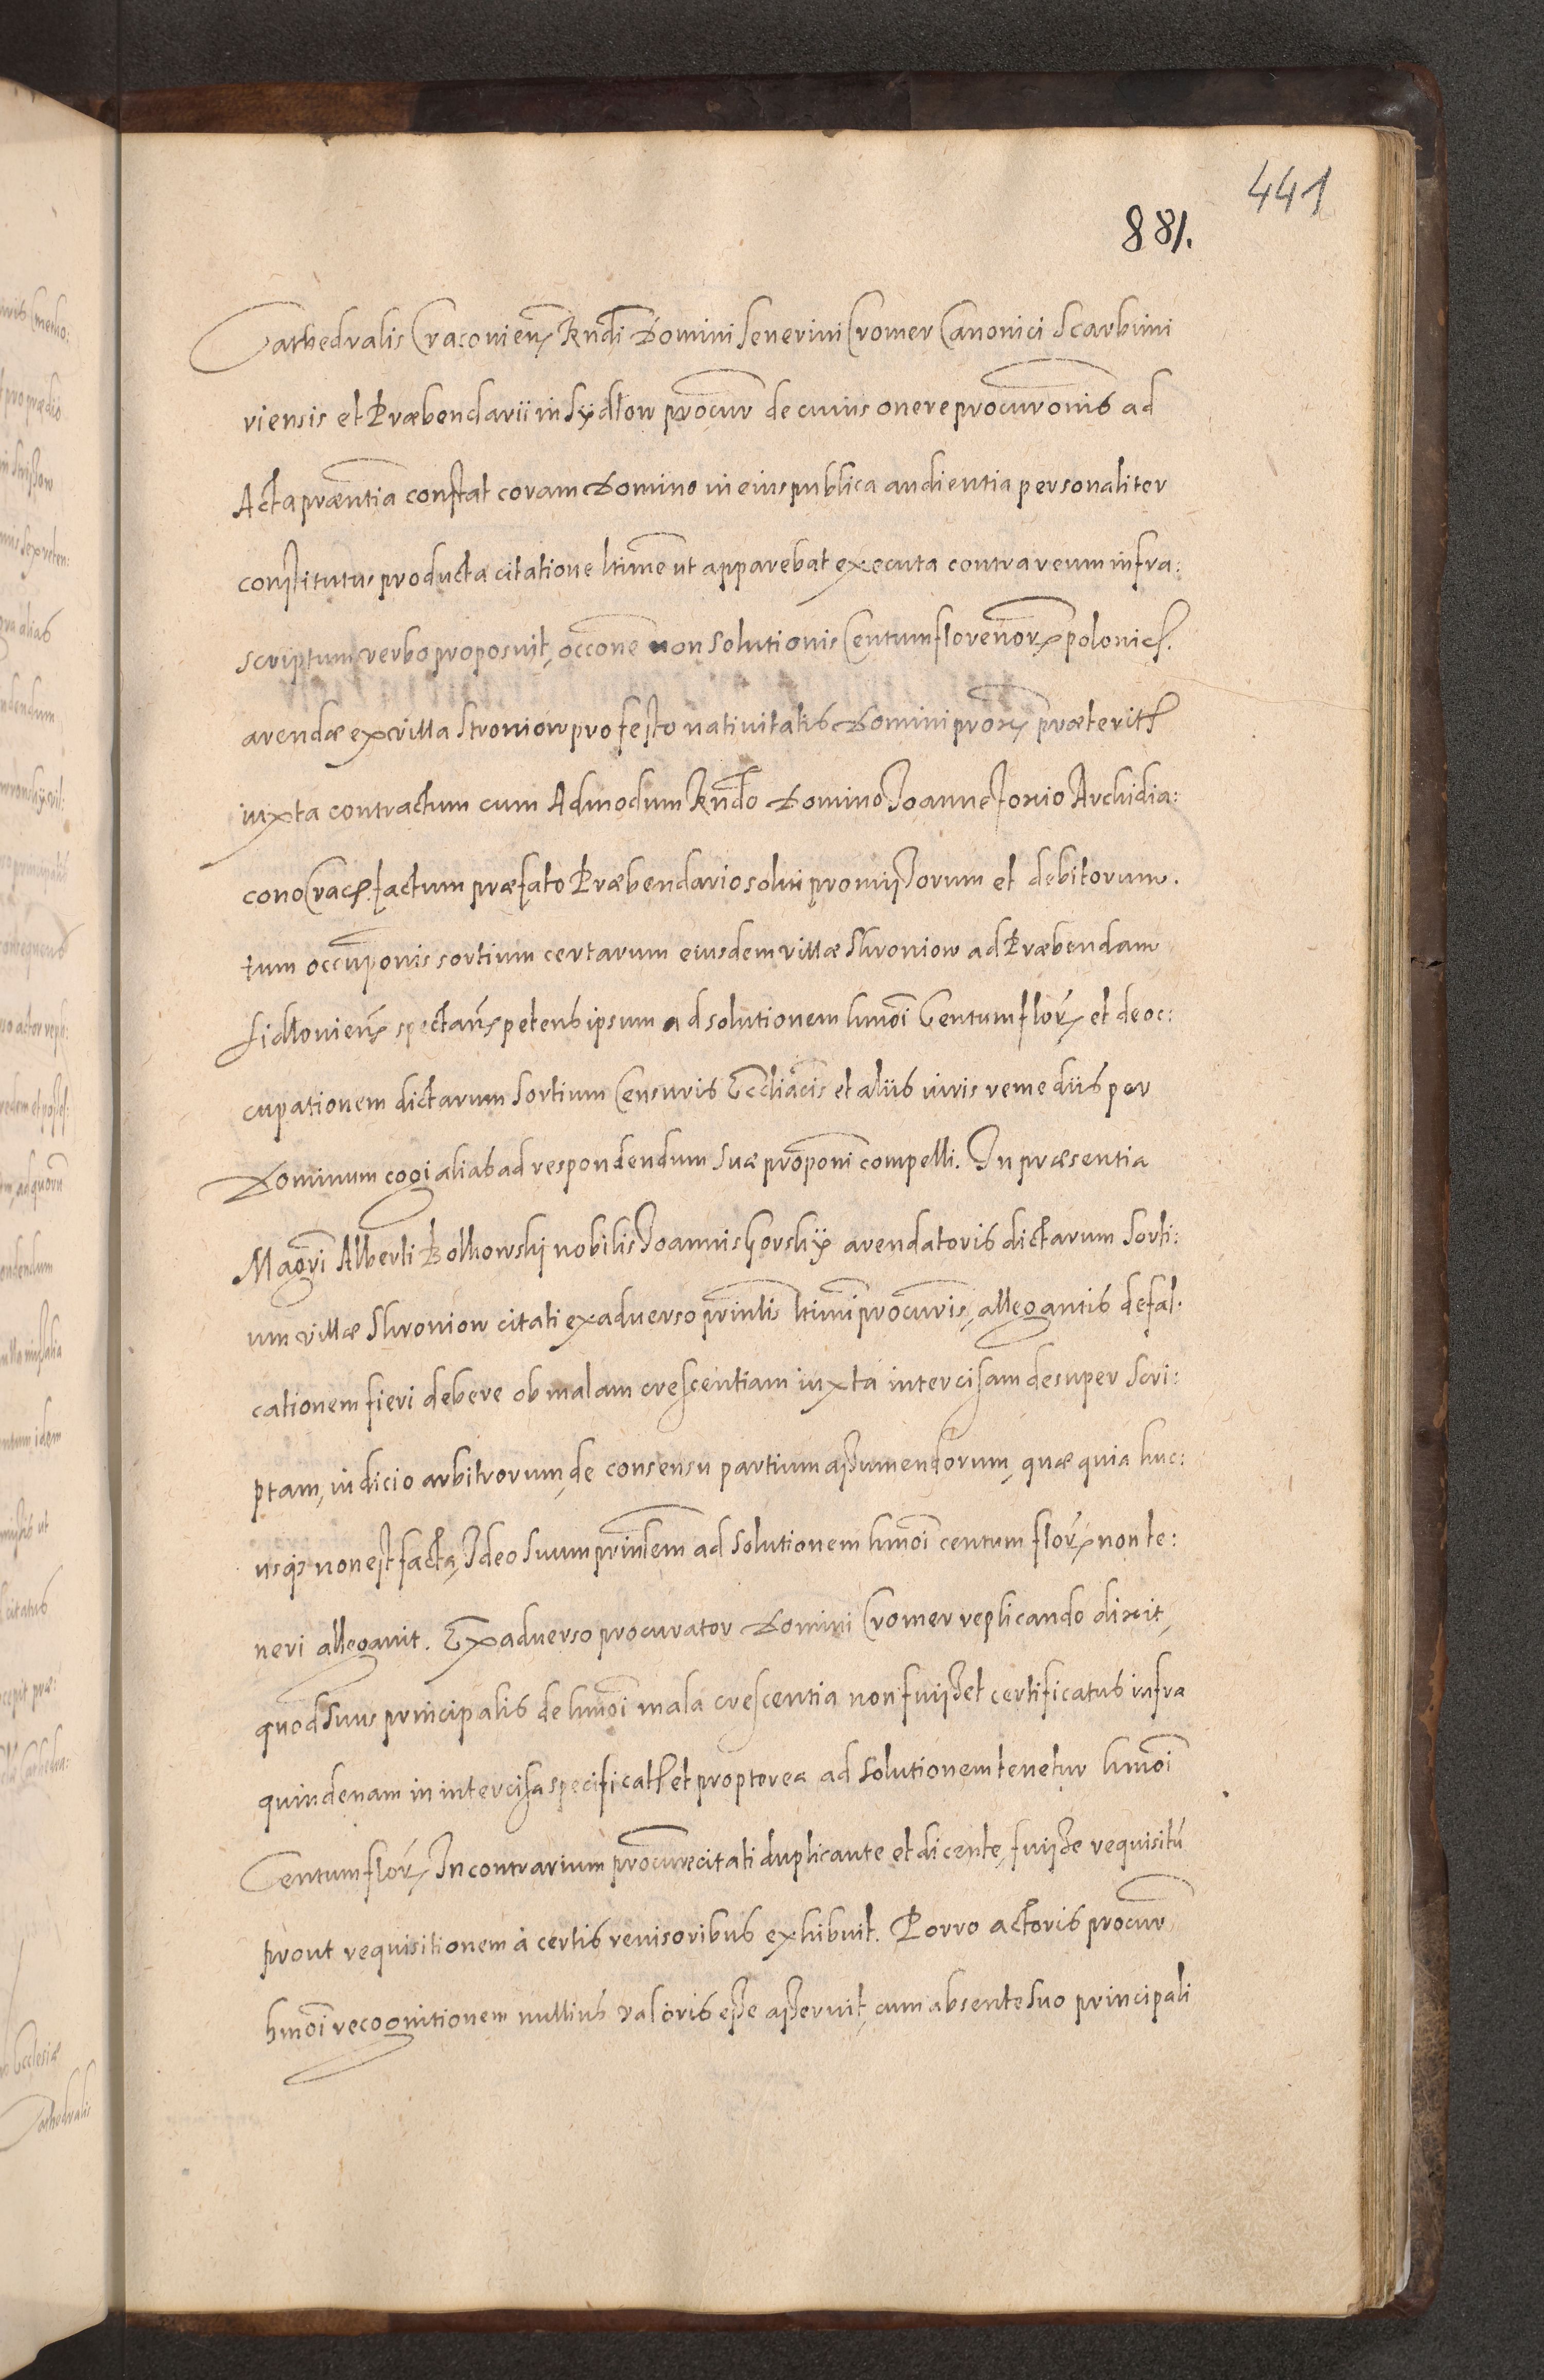 441
881.
Cathedralis Cracovien̄ Rn̄di Domini Severini Cromer Canonici Scarbimi
riensis et Præbendarii in Sÿdłow procur̄ de cuius onere procur̄onis ad
Acta præn̄tia constat coram Domino in eius publica audientia personaliter
constitutus producta citatione ltime ut apparebat executa contra reum infra:
scriptum, verbo proposuit, occ̄one non solutionis Centum florenor̄ polonic̄.
arendæ ex villa Stroniow pro festo nativitatis Domini prox̄ præterit̄
iuxta contractum cum Admodum Rn̄do Domino Joanne Foxio Archidia:
cono Crac̄. factum præfato Præbendario solvi promissorum et debitorum.
tum occup̄onis sortium certarum eiusdem villæ Stroniow ad Præbendam
Sidłovien̄ spectan̄ petens ipsum ad solutionem hm̄oi Centum flor̄ et de oc:
cupationem dictarum sortium Censuris Eccliacis et aliis iuris remediis per
Dominum cogi alias ad respondendum suæ prop̄oni compelli. In præsentia
Mag̅ri Alberti Bolkowskj nobilis Joannis Gorskÿ arendatoris dictarum Sorti:
um villæ Stroniow citati ex adverso prin̄lis ltimi procur̄is, allegantis defal:
cationem fieri debere ob malam crescentiam iuxta intercisam desuper scri:
ptam, iudicio arbitrorum, de consensu partium assumendorum, quæ quia huc:
usq̨ non est facta, Ideo suum prin̄lem ad solutionem hm̄oi centum flor̄ non te:
neri allegavit. Ex adverso procurator Domini Cromer replicando dixit,
quod suus principalis de hm̄oi mala crescentia non fuisset certificatus infra
quindenam in intercisa specificat̄ et propterea ad solutionem tenetur hm̄oi
Centum flor̄. In contrarium procur̄e citati duplicante et dicente, fuisse requisitū
prout requisitionem à certis revisoribus exhibuit. Porro actoris procur̄
hm̄oi recognitionem nullius valoris esse asseruit, cum absente suo principali